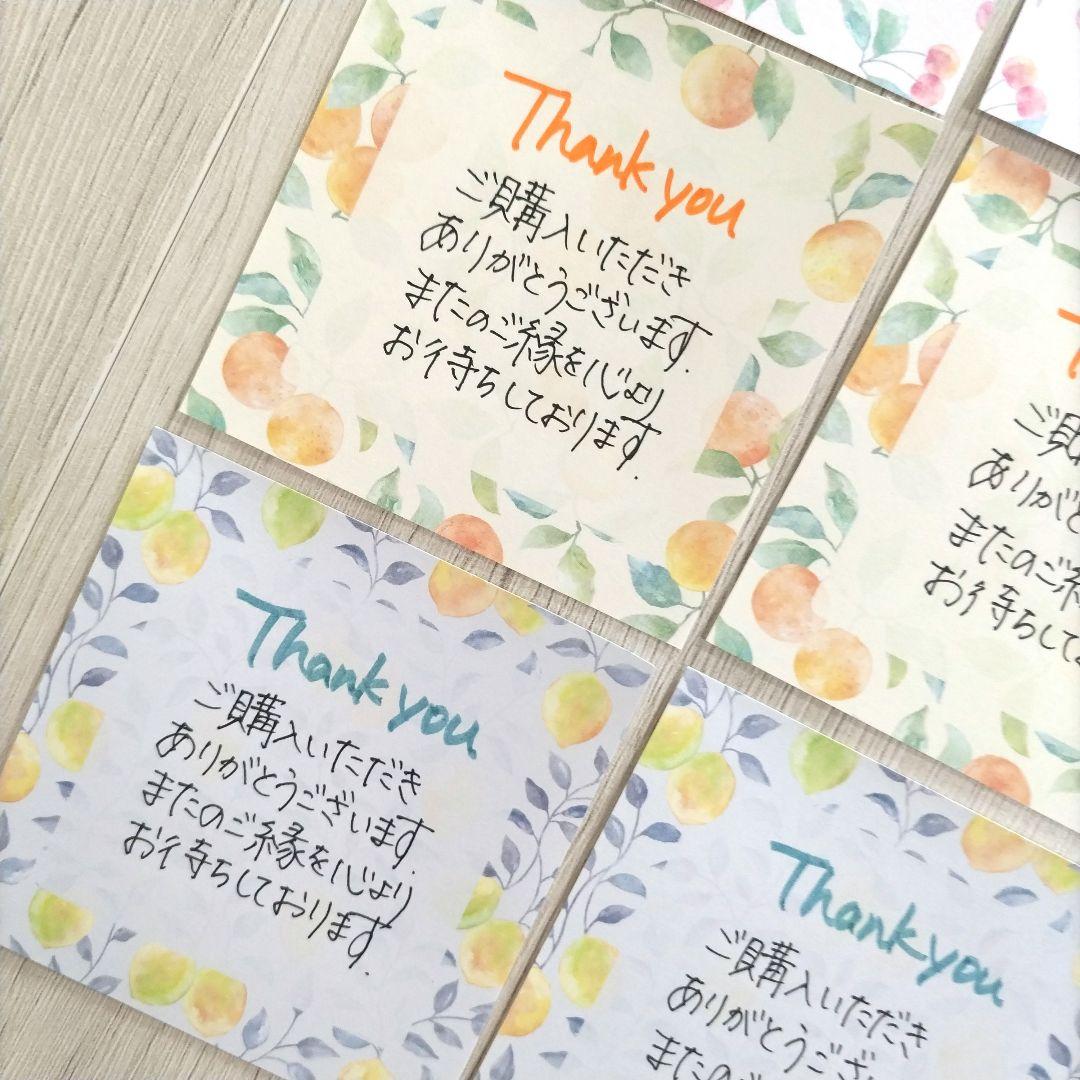 Thank you
ご購入いただき
ありがとうございます.
またのご縁を心より
お待ちしております.
ご購
ありがと
またのご縁
お待ちして
Thank you
ご購入いただき
ありがとうございます.
またのご縁を心より
お待ちしております.
Thank you
ご購入いただき
ありがとうござい
またのご